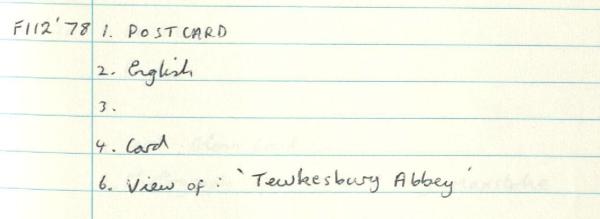 F112'78 1. POSTCARD
2. English
3.
4. Card
6. View of: 'Tewkesbury Abbey'